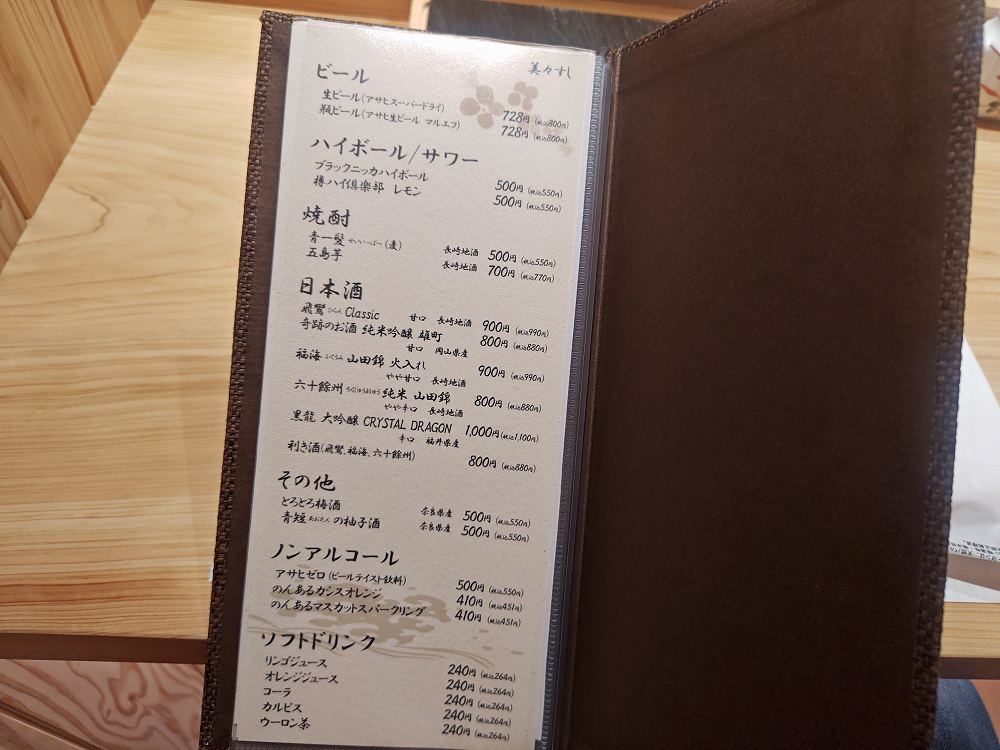 美々すし
ビール
生ビール(アサヒスーパードライ) 728円 (税込800円)
瓶ビール(アサヒ生ビール マルエフ) 728円 (税込800円)
ハイボール/サワー
ブラックニッカハイボール 500円 (税込550円)
樽ハイ倶楽部 レモン 500円 (税込550円)
焼酎
青一髪 せいいっぱつ (麦) 長崎地酒 500円 (税込550円)
五島芋 長崎地酒 700円 (税込770円)
日本酒
飛鸞 ひらん Classic 甘口 長崎地酒 900円 (税込990円)
奇跡のお酒 純米吟醸 雄町 800円 (税込880円)
甘口 岡山県産
福海 ふくうみ 山田錦 火入れ 900円 (税込990円)
やや甘口 長崎地酒
六十餘州 ろくじゅうよしゅう 純米 山田錦 800円 (税込880円)
やや辛口 長崎地酒
黒龍 大吟醸 CRYSTAL DRAGON 1,000円 (税込1,100円)
辛口 福井県産
利き酒(飛鸞、福海、六十餘州) 800円 (税込880円)
その他
とろとろ梅酒 奈良県産 500円 (税込550円)
青短 あおたん の柚子酒 奈良県産 500円 (税込550円)
ノンアルコール
アサヒゼロ(ビールテイスト飲料) 500円 (税込550円)
のんあるカシスオレンジ 410円 (税込451円)
のんあるマスカットスパークリング 410円 (税込451円)
ソフトドリンク
リンゴジュース 240円 (税込264円)
オレンジジュース 240円 (税込264円)
コーラ 240円 (税込264円)
カルピス 240円 (税込264円)
ウーロン茶 240円 (税込264円)